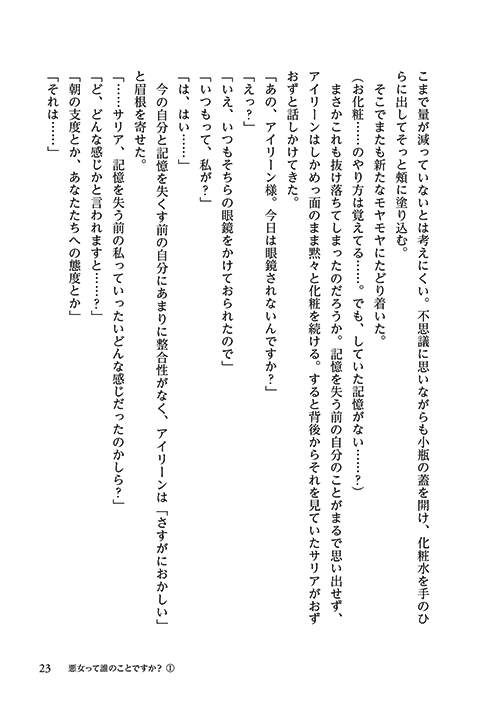 こまで量が減っていないとは考えにくい。不思議に思いながらも小瓶の蓋を開け、化粧水を手のひ
らに出してそっと頬に塗り込む。
　そこでまたも新たなモヤモヤにたどり着いた。
（お化粧……のやり方は覚えてる……。でも、していた記憶がない……？）
　まさかこれも抜け落ちてしまったのだろうか。記憶を失う前の自分のことがまるで思い出せず、
アイリーンはしかめっ面のまま黙々と化粧を続ける。すると背後からそれを見ていたサリアがおず
おずと話しかけてきた。
「あの、アイリーン様。今日は眼鏡されないんですか？」
「えっ？」
「いえ、いつもそちらの眼鏡をかけておられたので」
「いつもって、私が？」
「は、はい……」
　今の自分と記憶を失くす前の自分にあまりに整合性がなく、アイリーンは「さすがにおかしい」
と眉根を寄せた。
「……サリア、記憶を失う前の私っていったいどんな感じだったのかしら？」
「ど、どんな感じかと言われますと……？」
「朝の支度とか、あなたたちへの態度とか」
「それは……」
23　悪女って誰のことですか？ ①